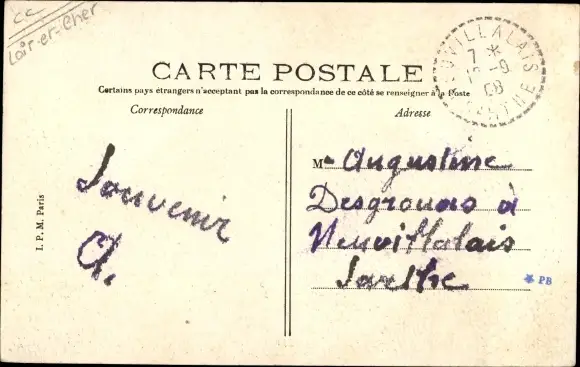 cc
Loir-et-Cher
NEUVILLALAIS
7 *
-9
08
SARTHE
CARTE POSTALE
Certains pays étrangers n'acceptant pas la correspondance de ce côté se renseigner à la Poste
Correspondance
Adresse
Souvenir
I. P. M. Paris
Augustine
Desgrouas à
Neuvillalais
Sarthe
* PB